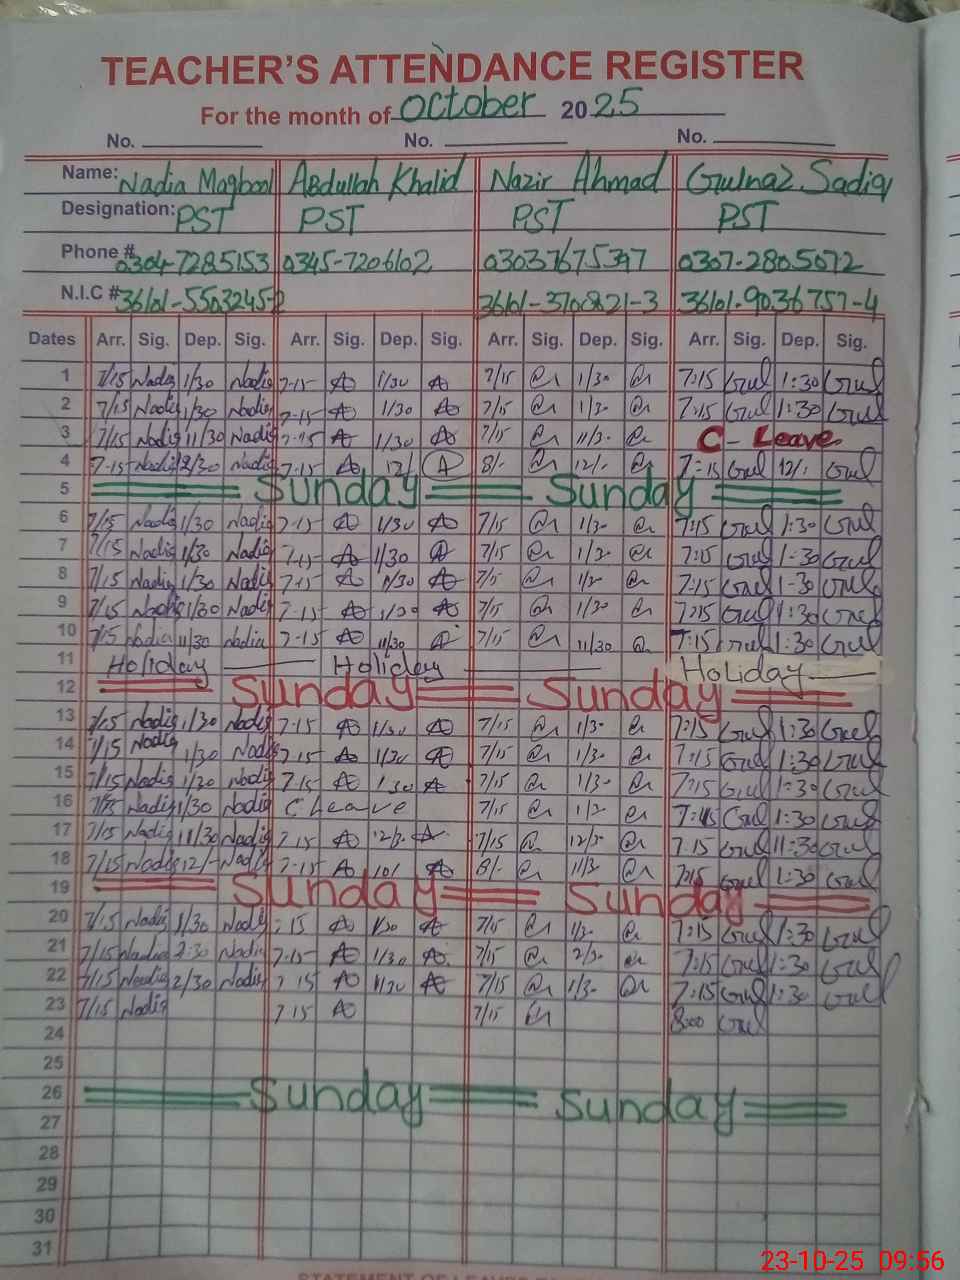 TEACHER'S ATTENDANCE REGISTER
For the month of October 2025
No. No. No.
Name: Nadia Maqbool Abdullah Khalid Nazir Ahmad Gulnaz Sadiq
Designation: PST PST PST PST
Phone # 0304-7285153 0345-7206102 03037675397 0307-2805072
N.I.C # 36101-5503245-2 36101-3700821-3 36101-9036757-4
Dates Arr. Sig. Dep. Sig. Arr. Sig. Dep. Sig. Arr. Sig. Dep. Sig. Arr. Sig. Dep. Sig.
1 7/15 Nadia 1/30 Nadia 7-15 1/30 7/15 1/30 7:15 Gul 1:30 Gul
2 7/15 Nadia 1/30 Nadia 7-15 1/30 7/15 1/30 7:15 Gul 1:30 Gul
3 7/15 Nadia 11/30 Nadia 7-15 1/30 7/15 11/30 C - Leave
4 7-15 Nadia 12/30 Nadia 7-15 12/ A 8/- 12/- 7:15 Gul 12/- Gul
5 Sunday Sunday
6 7/15 Nadia 1/30 Nadia 7-15 1/30 7/15 1/30 7:15 Gul 1:30 Gul
7 7/15 Nadia 1/30 Nadia 7-15 1/30 7/15 1/30 7:15 Gul 1:30 Gul
8 7/15 Nadia 1/30 Nadia 7-15 1/30 7/15 1/30 7:15 Gul 1-30 Gul
9 7/15 Nadia 1/30 Nadia 7-15 1/30 7/15 1/30 7:15 Gul 1:30 Gul
10 7/15 Nadia 11/30 Nadia 7-15 11/30 7/15 11/30 7:15 Gul 1:30 Gul
11 Holiday Holiday Holiday
12 Sunday Sunday
13 7/15 Nadia 1/30 Nadia 7-15 1/30 7/15 1/30 7:15 Gul 1:30 Gul
14 7/15 Nadia 1/30 Nadia 7-15 1/30 7/15 1/30 7:15 Gul 1:30 Gul
15 7/15 Nadia 1/30 Nadia 7-15 1:30 7/15 1/30 7:15 Gul 1:30 Gul
16 7/15 Nadia 1/30 Nadia C Leave 7/15 1/30 7:15 Gul 1:30 Gul
17 7/15 Nadia 11/30 Nadia 7-15 12/30 7/15 12/30 7:15 Gul 11:30 Gul
18 7/15 Nadia 12/- Nadia 7-15 8/- 11/30 7:15 Gul 1:30 Gul
19 Sunday Sunday
20 7/15 Nadia 1/30 Nadia 7-15 1/30 7/15 1/30 7:15 Gul 1:30 Gul
21 7/15 Nadia 2:30 Nadia 7-15 1/30 7/15 2/30 7:15 Gul 1:30 Gul
22 7/15 Nadia 2/30 Nadia 7-15 1/30 7/15 1/30 7:15 Gul 1:30 Gul
23 7/15 Nadia 7-15 7/15 8:00 Gul
24
25
26 Sunday Sunday
27
28
29
30
31
23-10-25 09:56